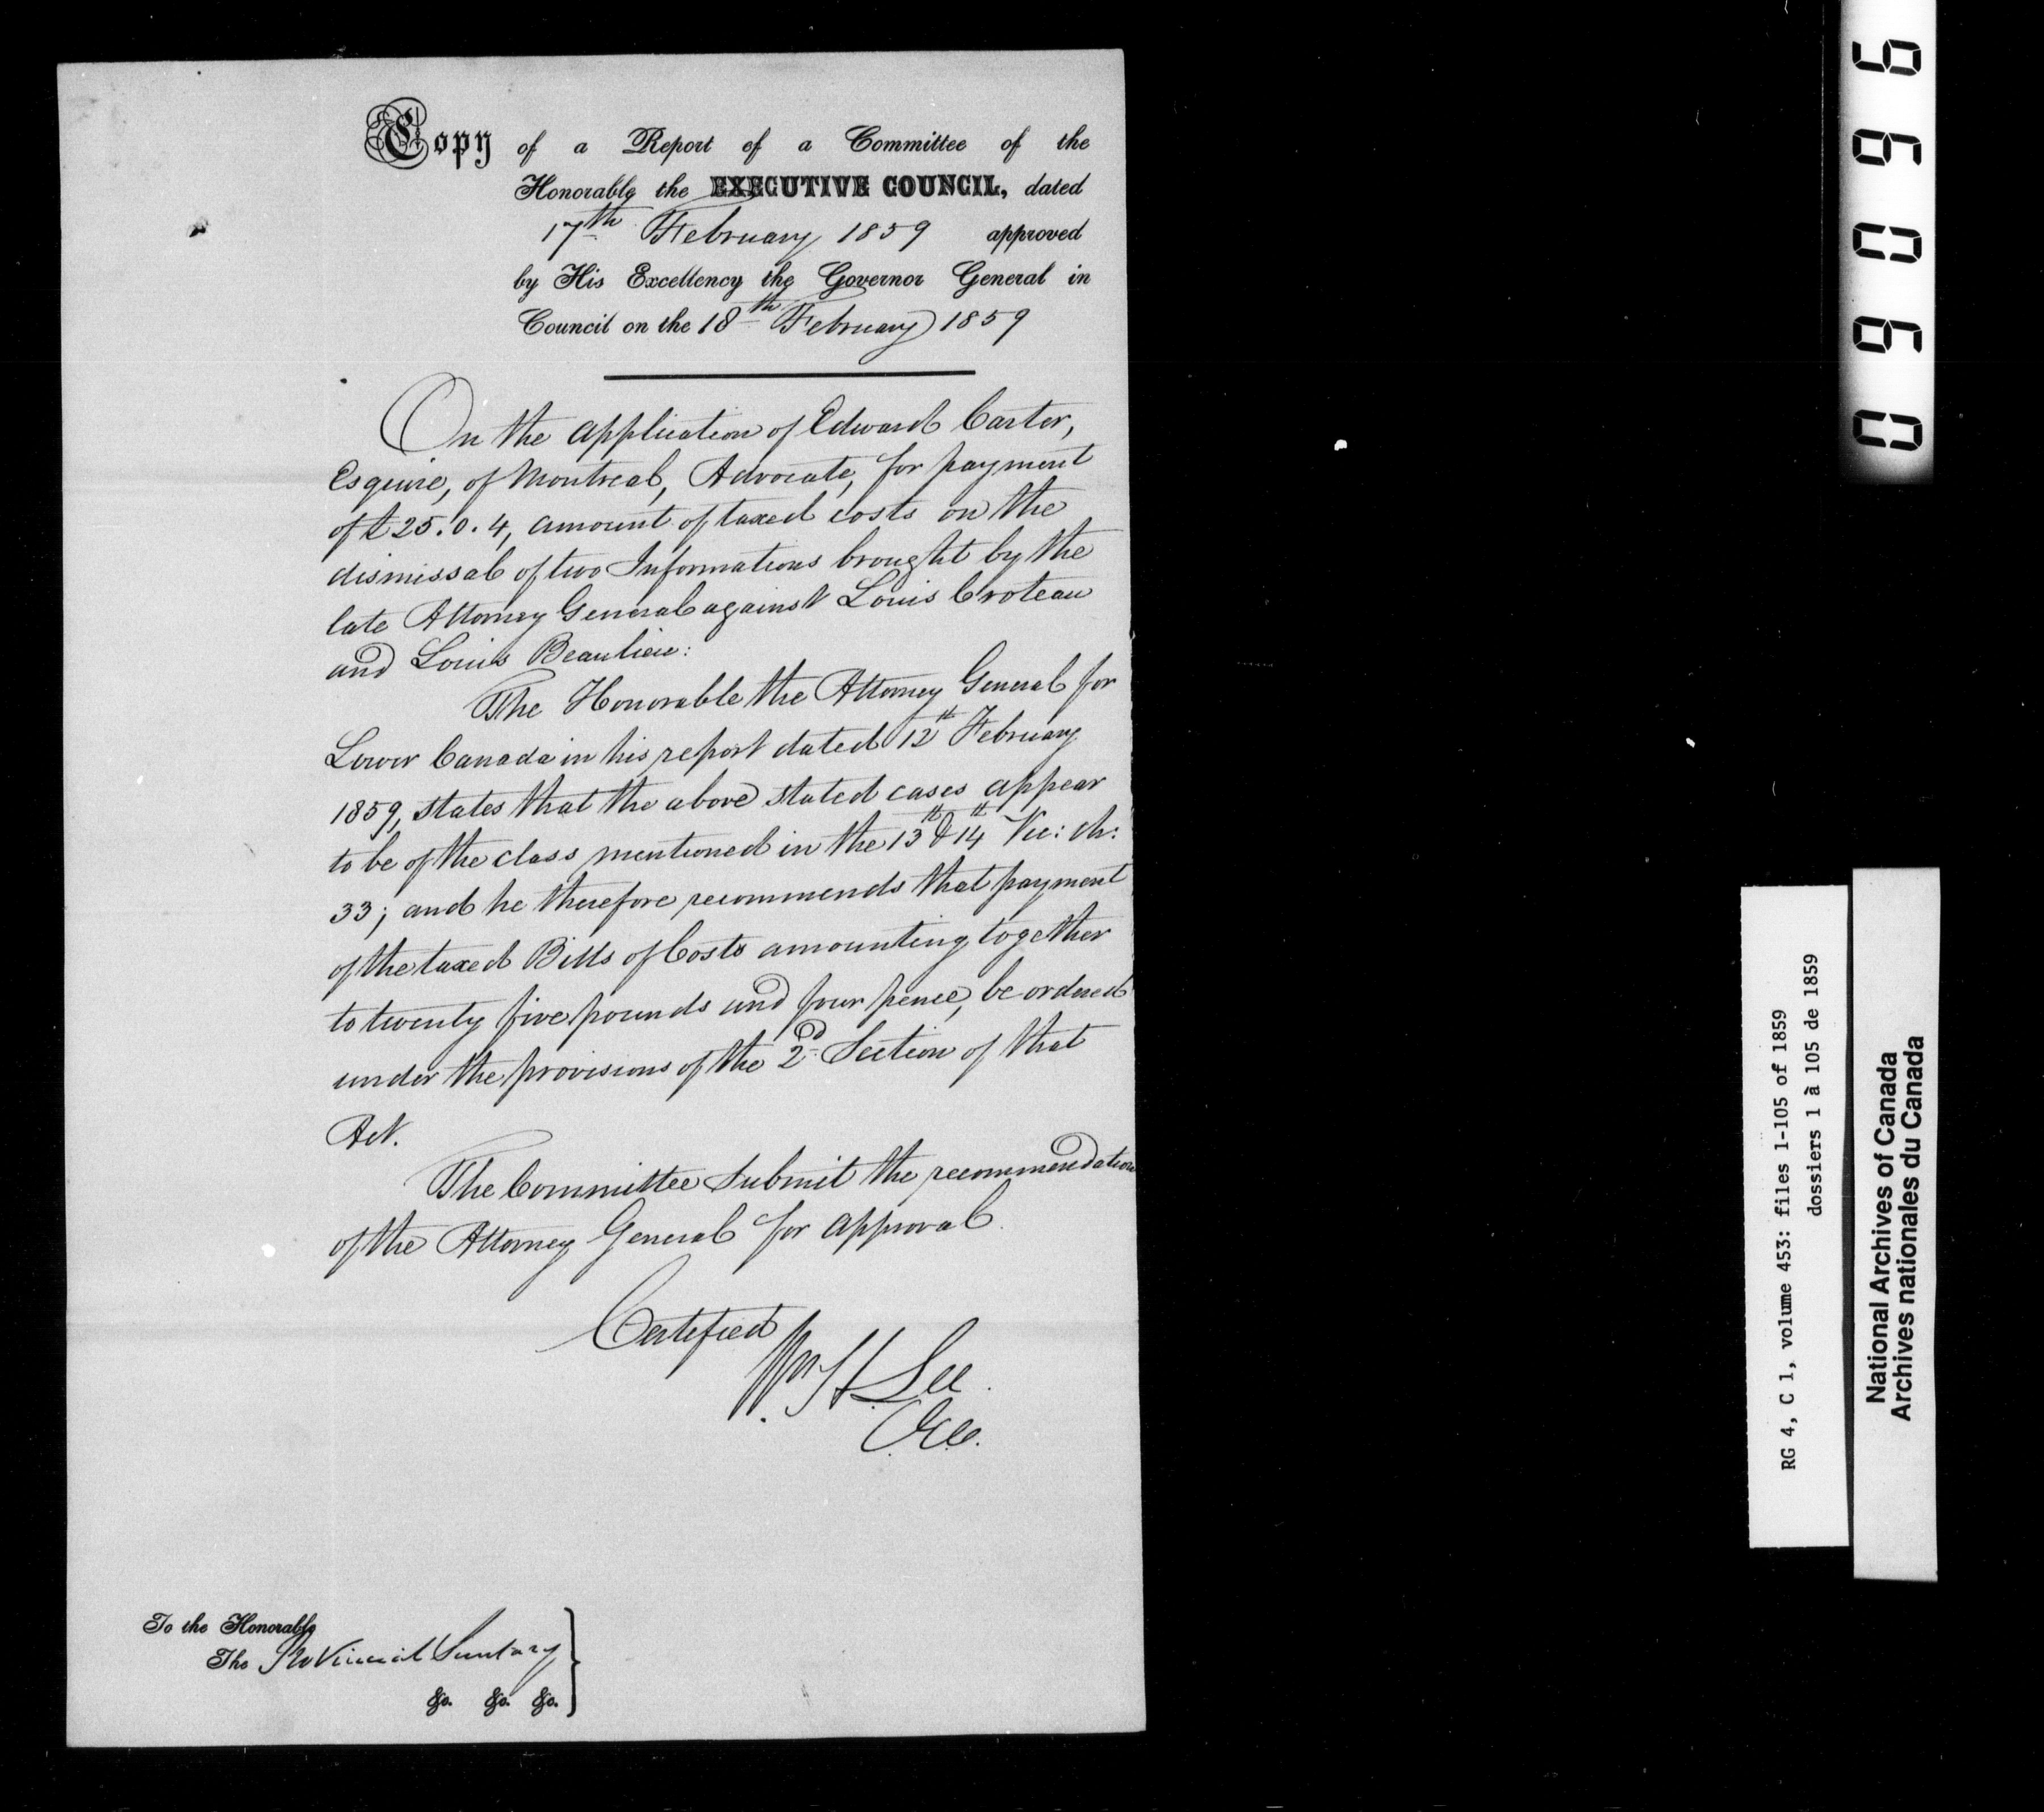 Copy of a Report of a Committee of the
Honorable the EXECUTIVE COUNCIL, dated
17th February 1859 approved
by His Excellency the Governor General in
Council on the 18th February 1859
On the application of Edward Carter,
Esquire, of Montreal, Advocate, for payment
of £25.0.4, amount of taxed costs on the
dismissal of two Informations brought by the
late Attorney General against Louis Croteau
and Louis Beaulieu:
The Honorable the Attorney General for
Lower Canada in his report dated 12th February
1859, states that the above stated cases appear
to be of the class mentioned in the 13th & 14th Vic: ch:
33; and he therefore recommends that payment
of the taxed Bills of Costs amounting together
to twenty five pounds and four pence, be ordered
under the provisions of the 2d Section of that
Act.
The Committee submit the recommendation
of the Attorney General for approval.
Certified
Wm H Lee
C.E.C.
To the Honorable
The Provincial Secretary
&c. &c. &c.
09096
RG 4, C 1, volume 453: files 1-105 of 1859
dossiers 1 à 105 de 1859
National Archives of Canada
Archives nationales du Canada